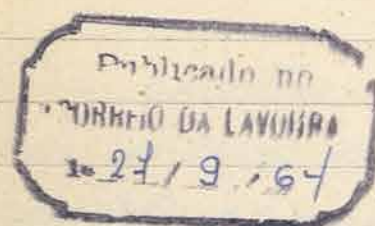 Publicado no
CORREIO DA LAVOURA
de 27 / 9 / 64